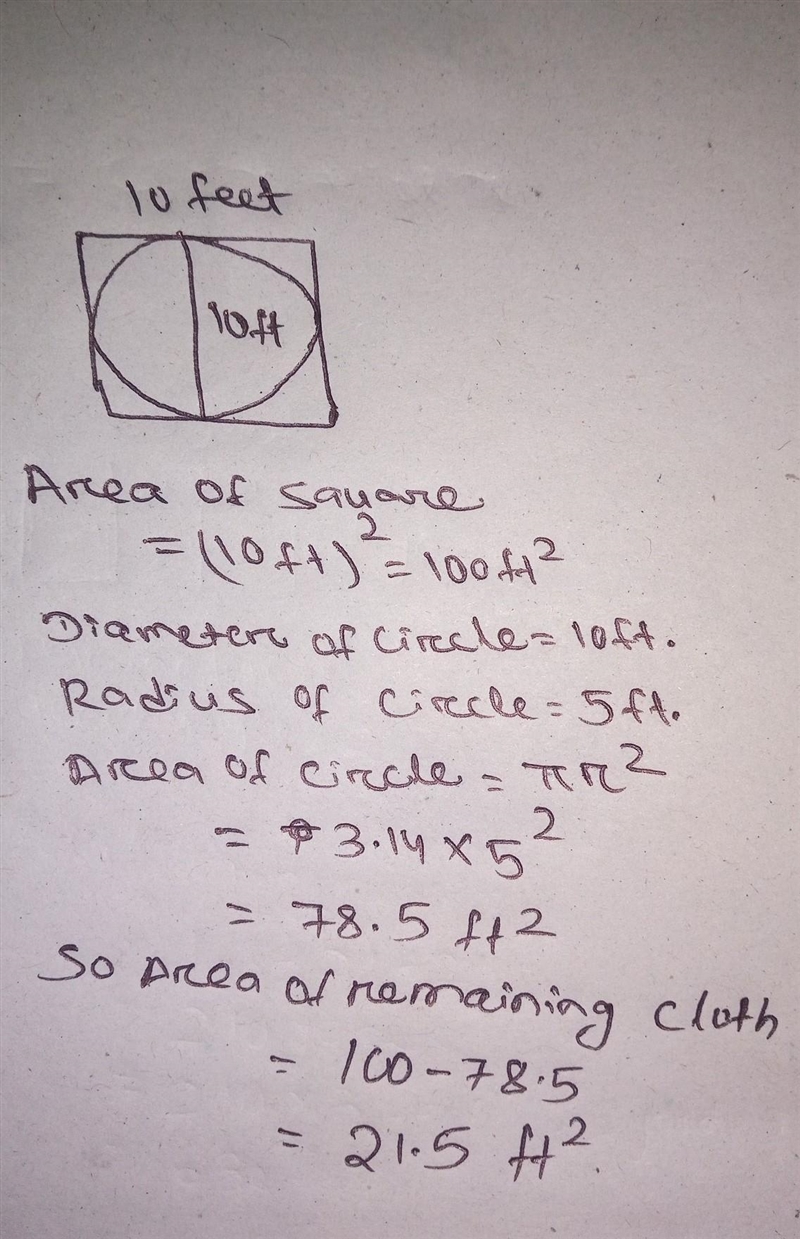 10 feet
10ft
Area of square
= (10ft)² = 100ft²
Diameter of circle = 10ft.
Radius of circle = 5ft.
Area of circle = πr²
= 3.14 × 5²
= 78.5 ft²
So Area of remaining cloth
= 100 - 78.5
= 21.5 ft².